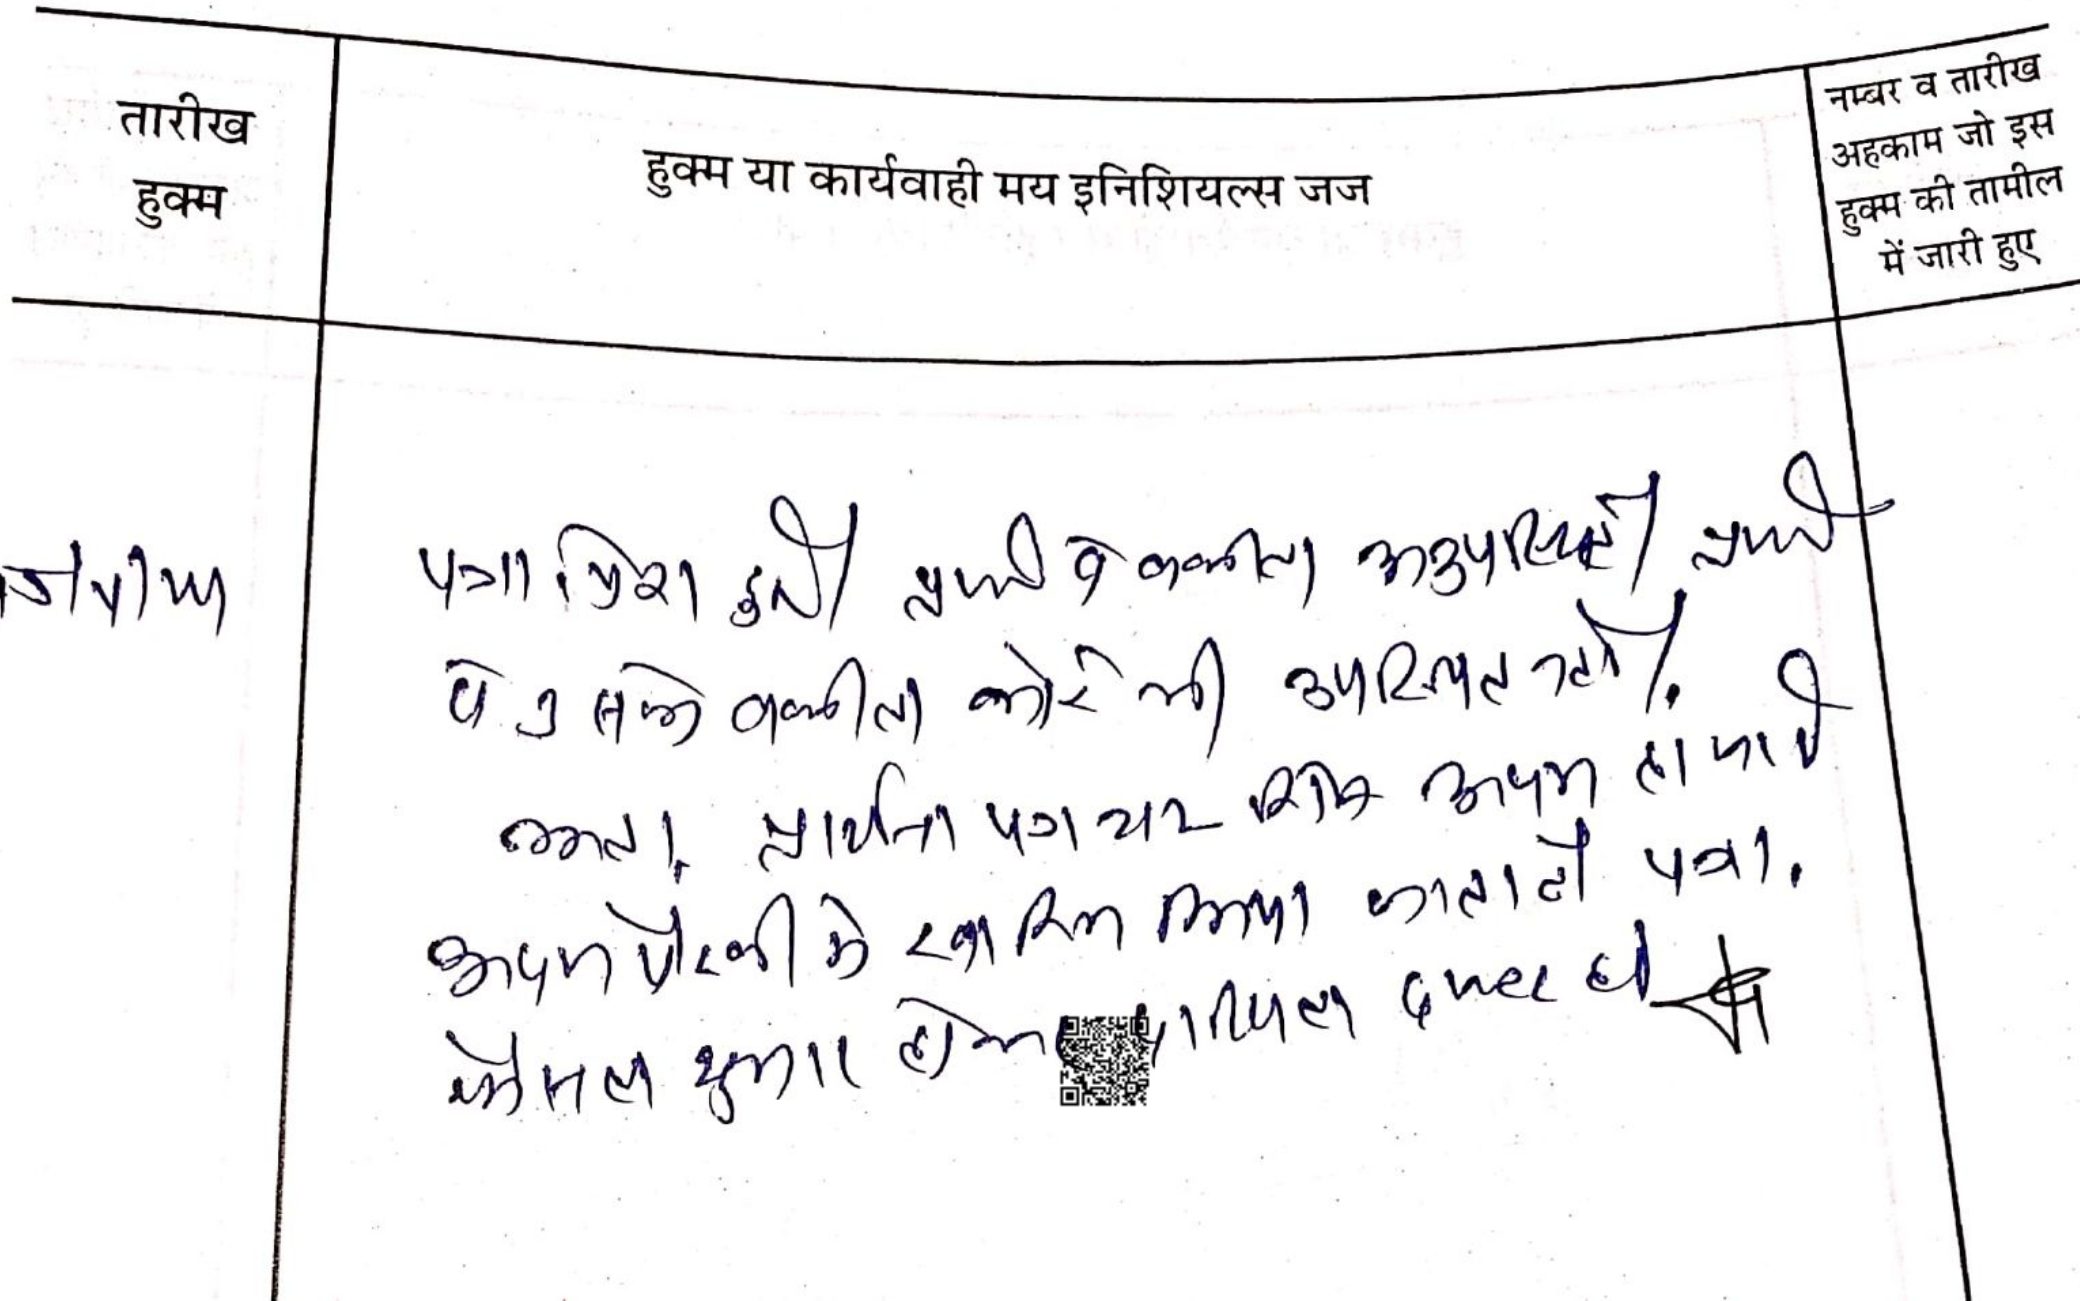 तारीख
हुक्म
हुक्म या कार्यवाही मय इनिशियल्स जज
नम्बर व तारीख
अहकाम जो इस
हुक्म की तामील
में जारी हुए
पत्रा पेश हुयी प्रार्थी व वकील अनुपस्थित प्रार्थी
व उसके वकील कोई भी उपस्थित नहीं।
अतः प्रार्थना पत्र अदम
अदम पैरवी मे खारिज किया जाता है पत्रा.
फैसल शुमार होकर दाखिल दफ्तर हो